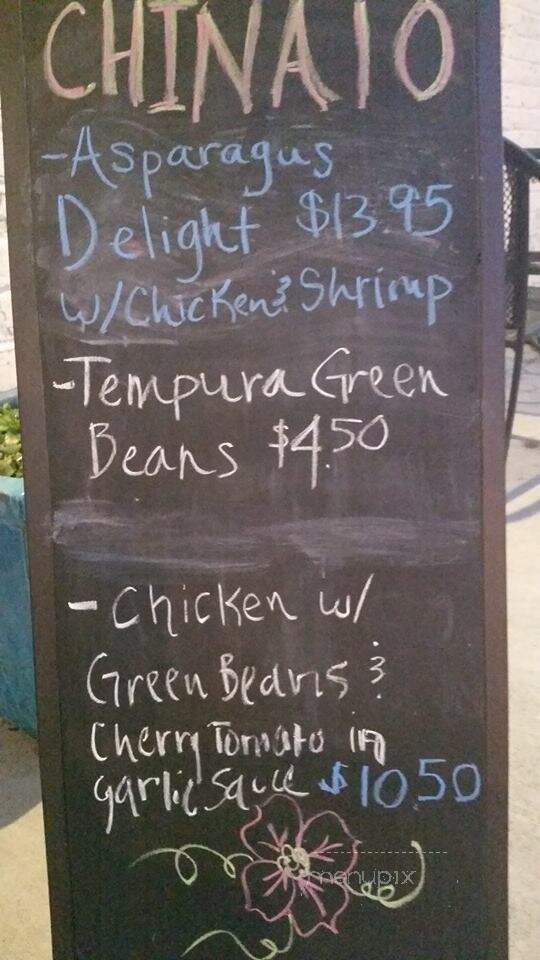 CHINA 10
-Asparagus
Delight $13.95
w/Chicken & Shrimp
-Tempura Green
Beans $4.50
- Chicken w/
Green Beans &
Cherry Tomato in
garlic Sauce $10.50
menupix